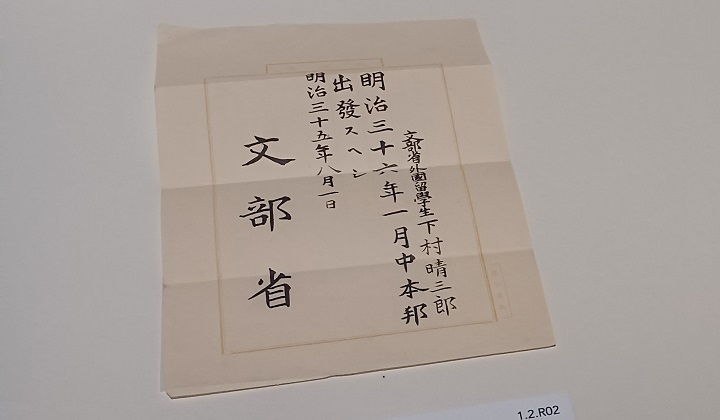 文部省外國留學生下村晴三郎
明治三十六年一月中本邦
出發スヘシ
明治三十五年八月一日
文部省
1.2.R02